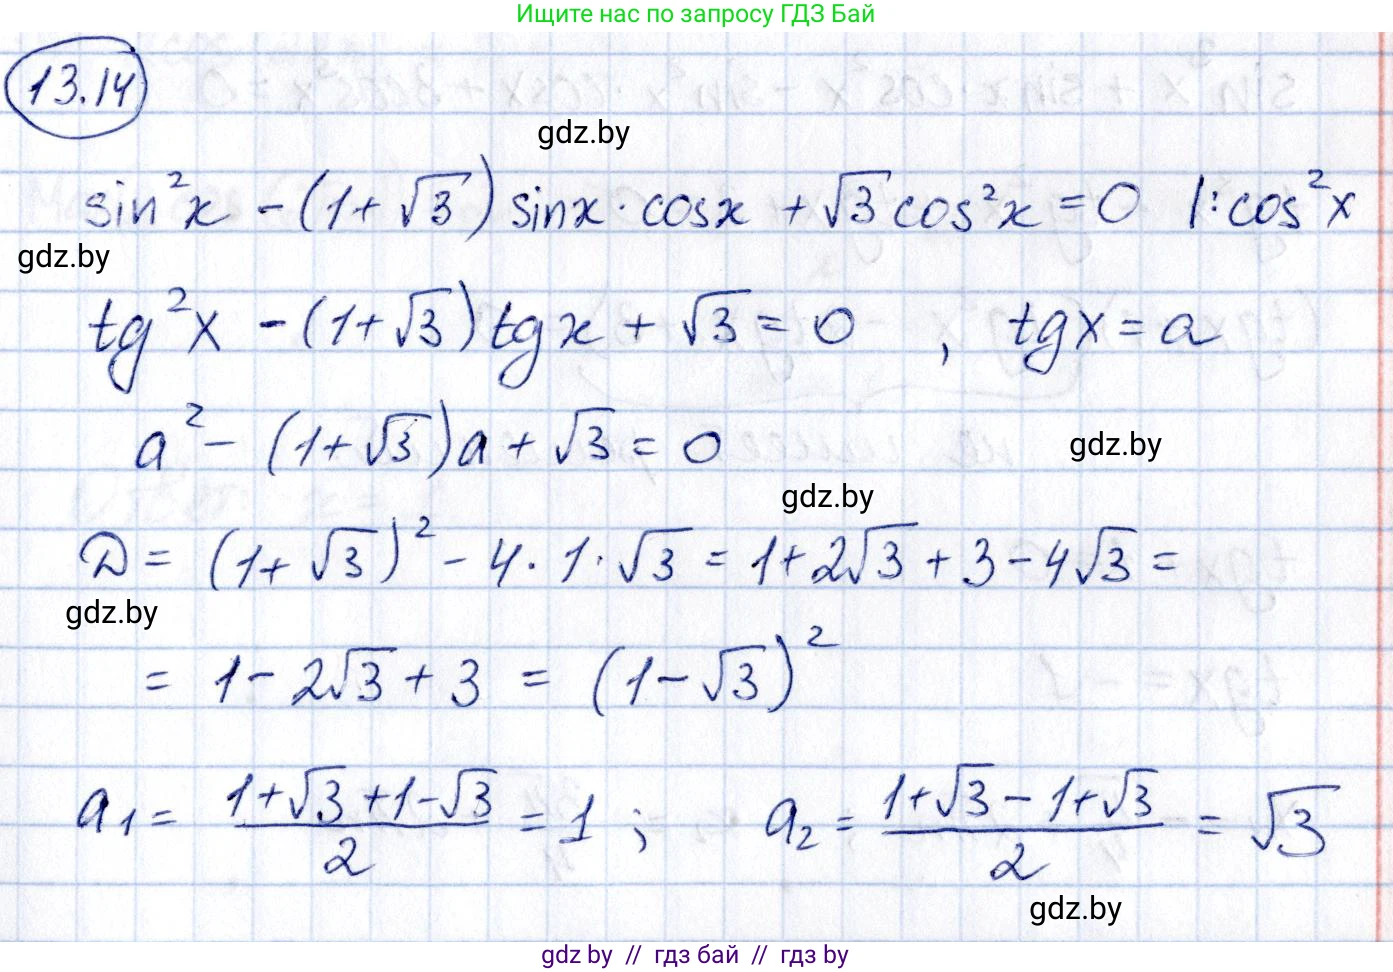 Ищите нас по запросу ГДЗ Бай
13.14
gdz.by
sin²x - (1+√3) sinx · cosx + √3 cos²x = 0 |: cos²x
gdz.by
tg²x - (1+√3) tgx + √3 = 0 , tgx = a
a² - (1+√3)a + √3 = 0
gdz.by
gdz.by
D = (1+√3)² - 4·1·√3 = 1+2√3+3-4√3 =
gdz.by
= 1-2√3+3 = (1-√3)²
a₁ = (1+√3+1-√3)/2 = 1 ; a₂ = (1+√3-1+√3)/2 = √3
gdz.by
gdz by // гдз бай // гдз by